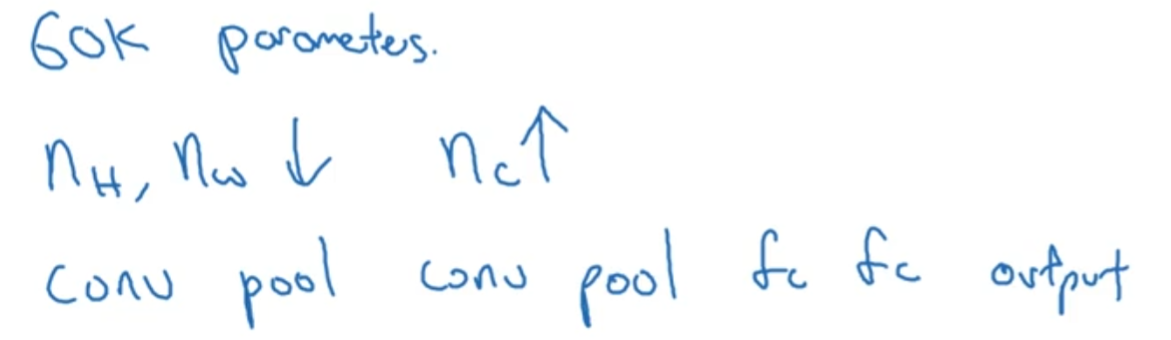 60K parameters.
n_H, n_W ↓ n_C ↑
conv pool conv pool fc fc output